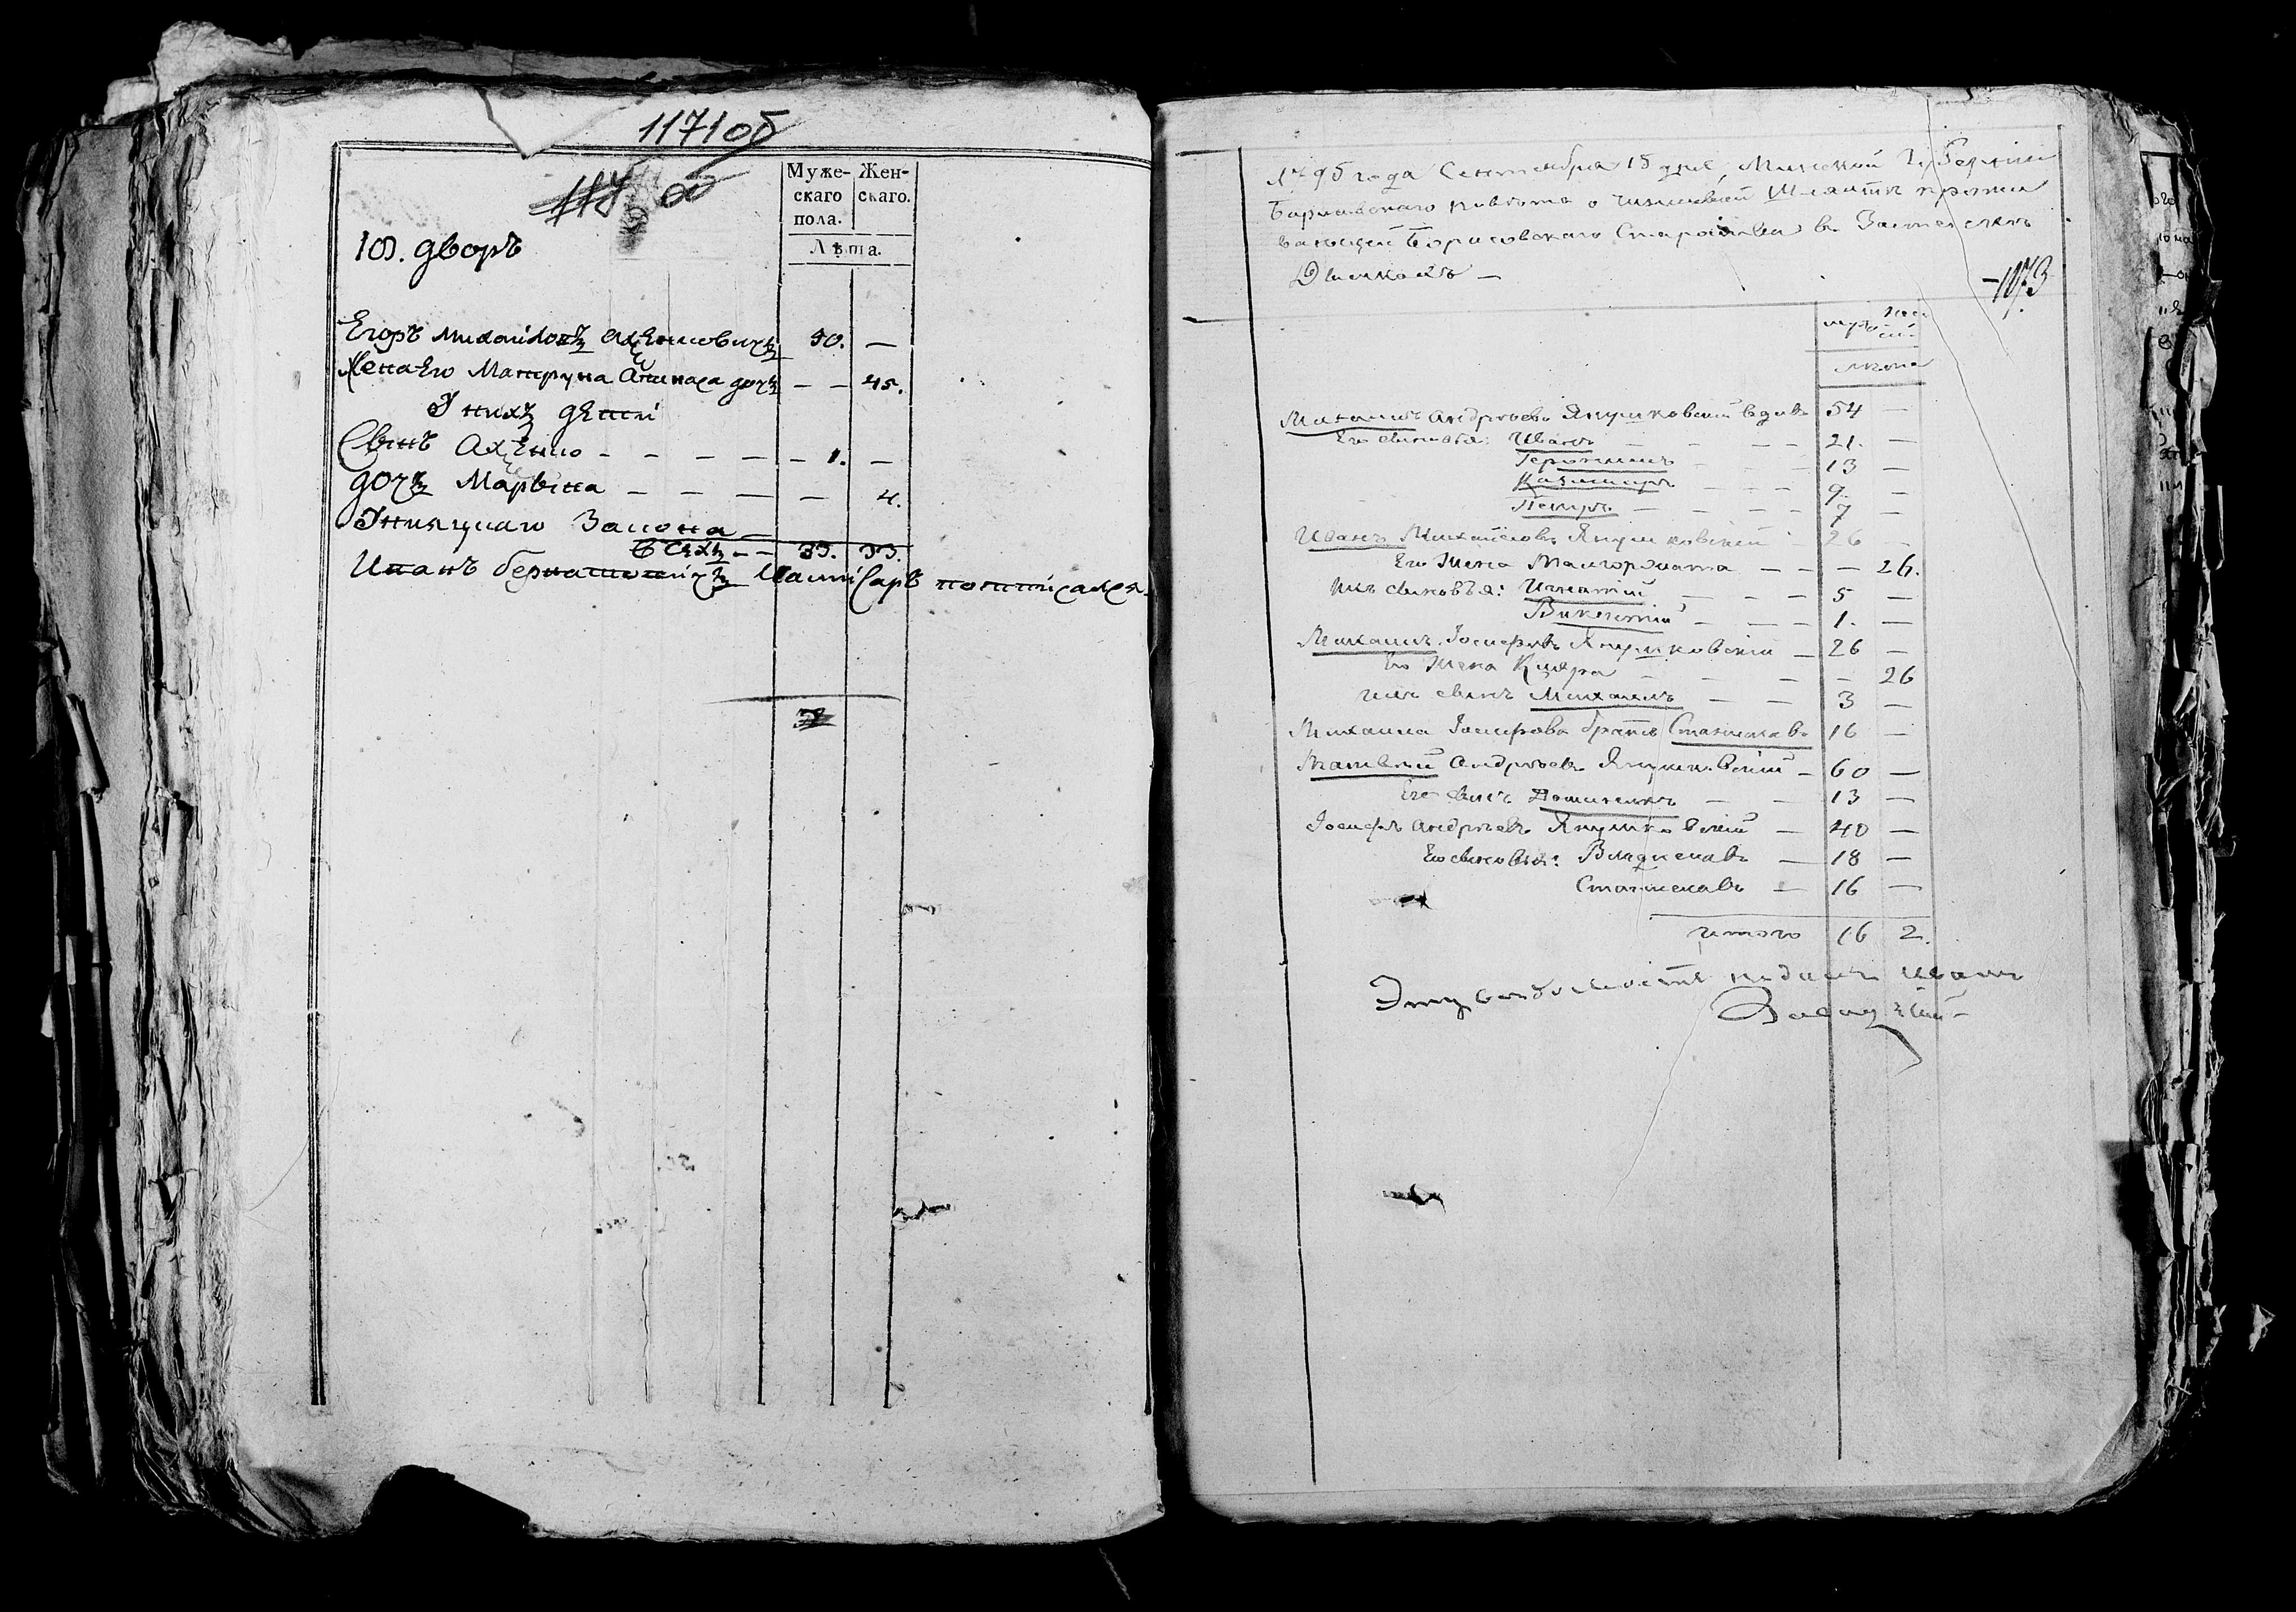 1171об
Муже-
скаго
пола.
Жен-
скаго.
Лѣта.
10. дворъ
Егоръ Михайловъ 50. —
Жена Его дочь — — 45.
У нихъ дети
Сынъ — — — — — 1. —
дочь Марьяна — — — — 4.
Закона
Всехъ — — 33. 33.
Иванъ
1795 года Сентября 15 дня, Минской Губернии
Борисовскаго повѣта о чиншевой Шляхтѣ прожи
вающей Борисовскаго Староства в Застенкѣ
Дымкахъ —
1173
муж жен
лѣта
Михаилъ Андрѣевъ Янушковский вдовъ 54 —
Его сыновья: Иванъ — — — — 21. —
Геронимъ — — 13 —
Казимиръ — — — 9. —
Петръ — — — — 7 —
Иванъ Михайловъ Янушковский — 26 —
Его Жена Малгоржата — — — 26.
ихъ сыновья: Игнатий — — — 5 —
Викентий — — — 1. —
Михаилъ Іосифовъ Янушковский — 26 —
Его Жена — — — 26
ихъ сынъ Михаилъ — — 3 —
Михаила Іосифова братъ Станиславъ 16 —
Матвей Андрѣевъ Янушковский — 60 —
Его сынъ Доминикъ — — 13 —
Іосифъ Андрѣевъ Янушковский — 40 —
Его сыновья: Владиславъ — 18 —
Станиславъ — 16 —
итого 16 2.
Эту ведомость подалъ Иванъ